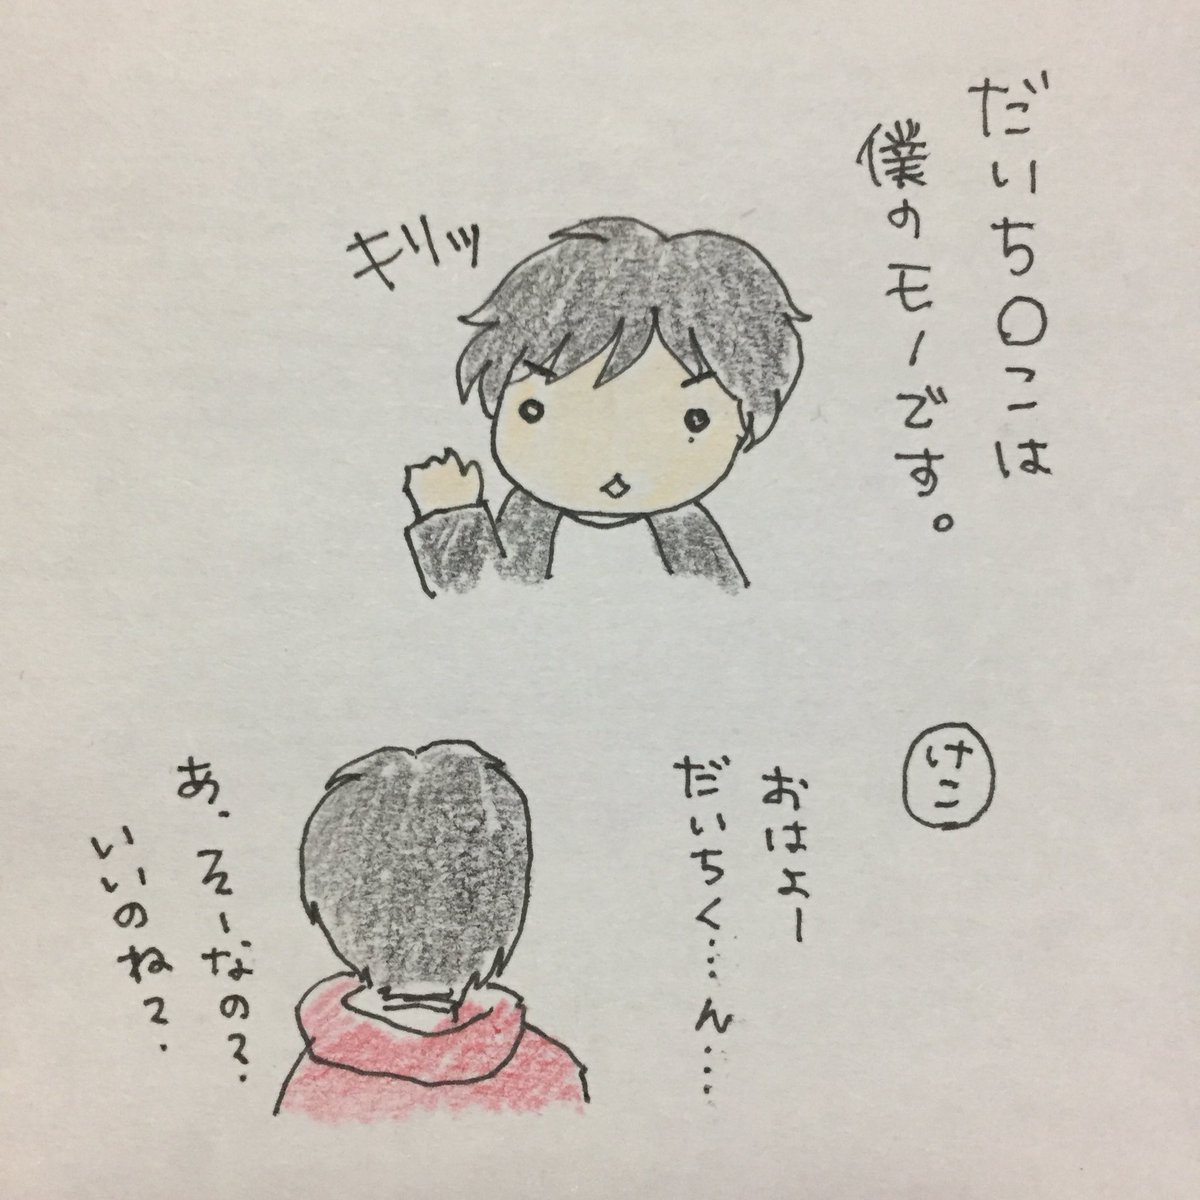 だいち〇こは
僕のモーです。
キリッ
けこ
おはよー
だいちく…ん…
あ、そーなの?
いいのね?